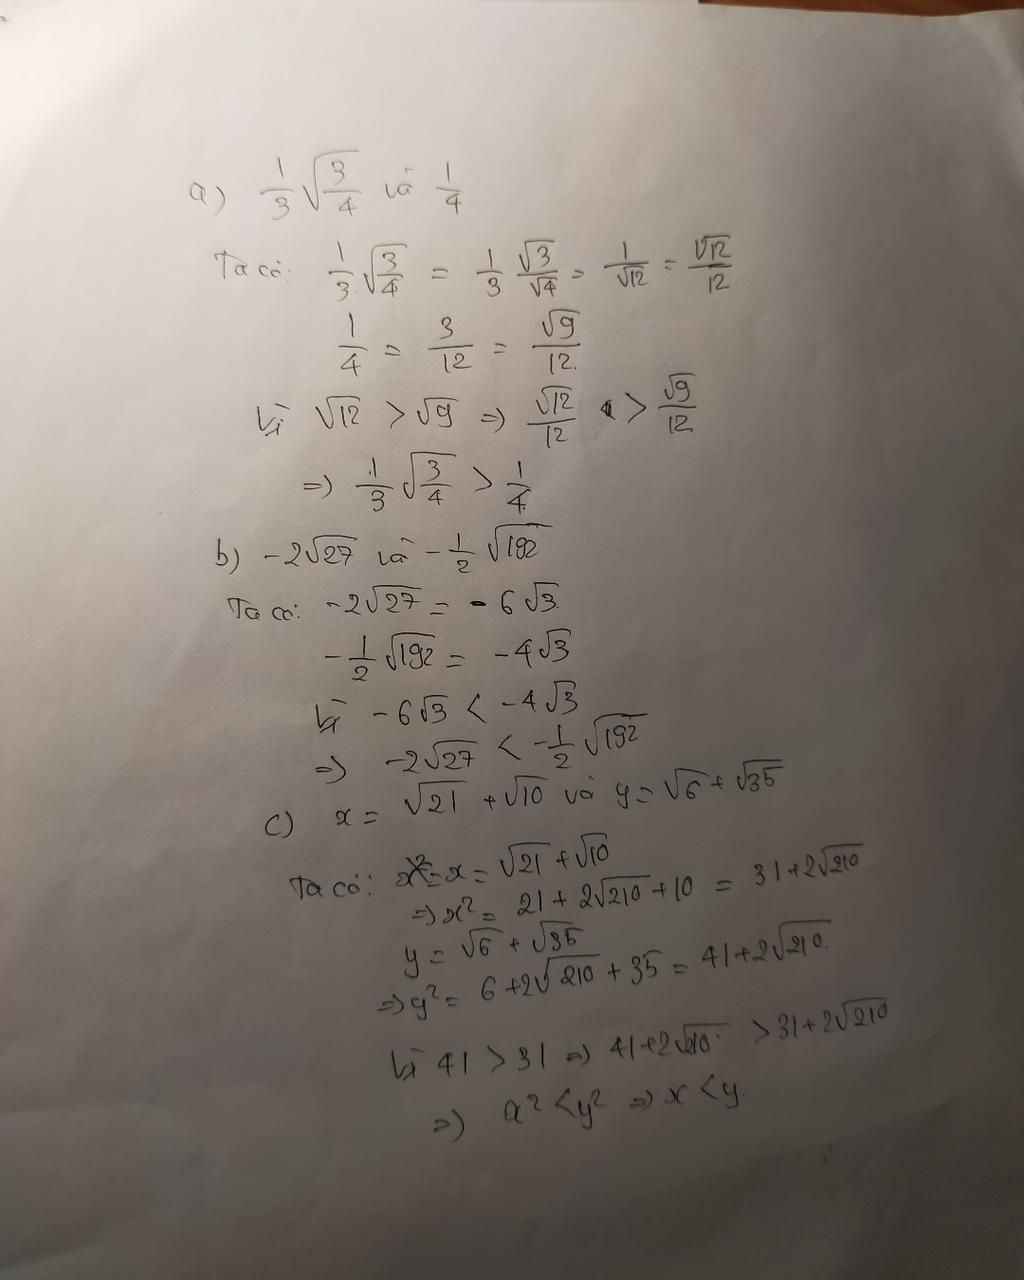 a) 1/3 √(3/4) và 1/4
Ta có: 1/3 √(3/4) = 1/3 √3/√4 = 1/√12 = √12/12
1/4 = 3/12 = √9/12.
Vì √12 > √9 => √12/12 > √9/12
=> 1/3 √(3/4) > 1/4
b) -2√27 và -1/2 √192
Ta có: -2√27 = -6√3.
-1/2 √192 = -4√3
Vì -6√3 < -4√3
=> -2√27 < -1/2 √192
c) x = √21 + √10 và y = √6 + √35
Ta có: x = √21 + √10
=> x² = 21 + 2√210 + 10 = 31 + 2√210
y = √6 + √35
=> y² = 6 + 2√210 + 35 = 41 + 2√210.
Vì 41 > 31 => 41 + 2√210 > 31 + 2√210
=> x² < y² => x < y.